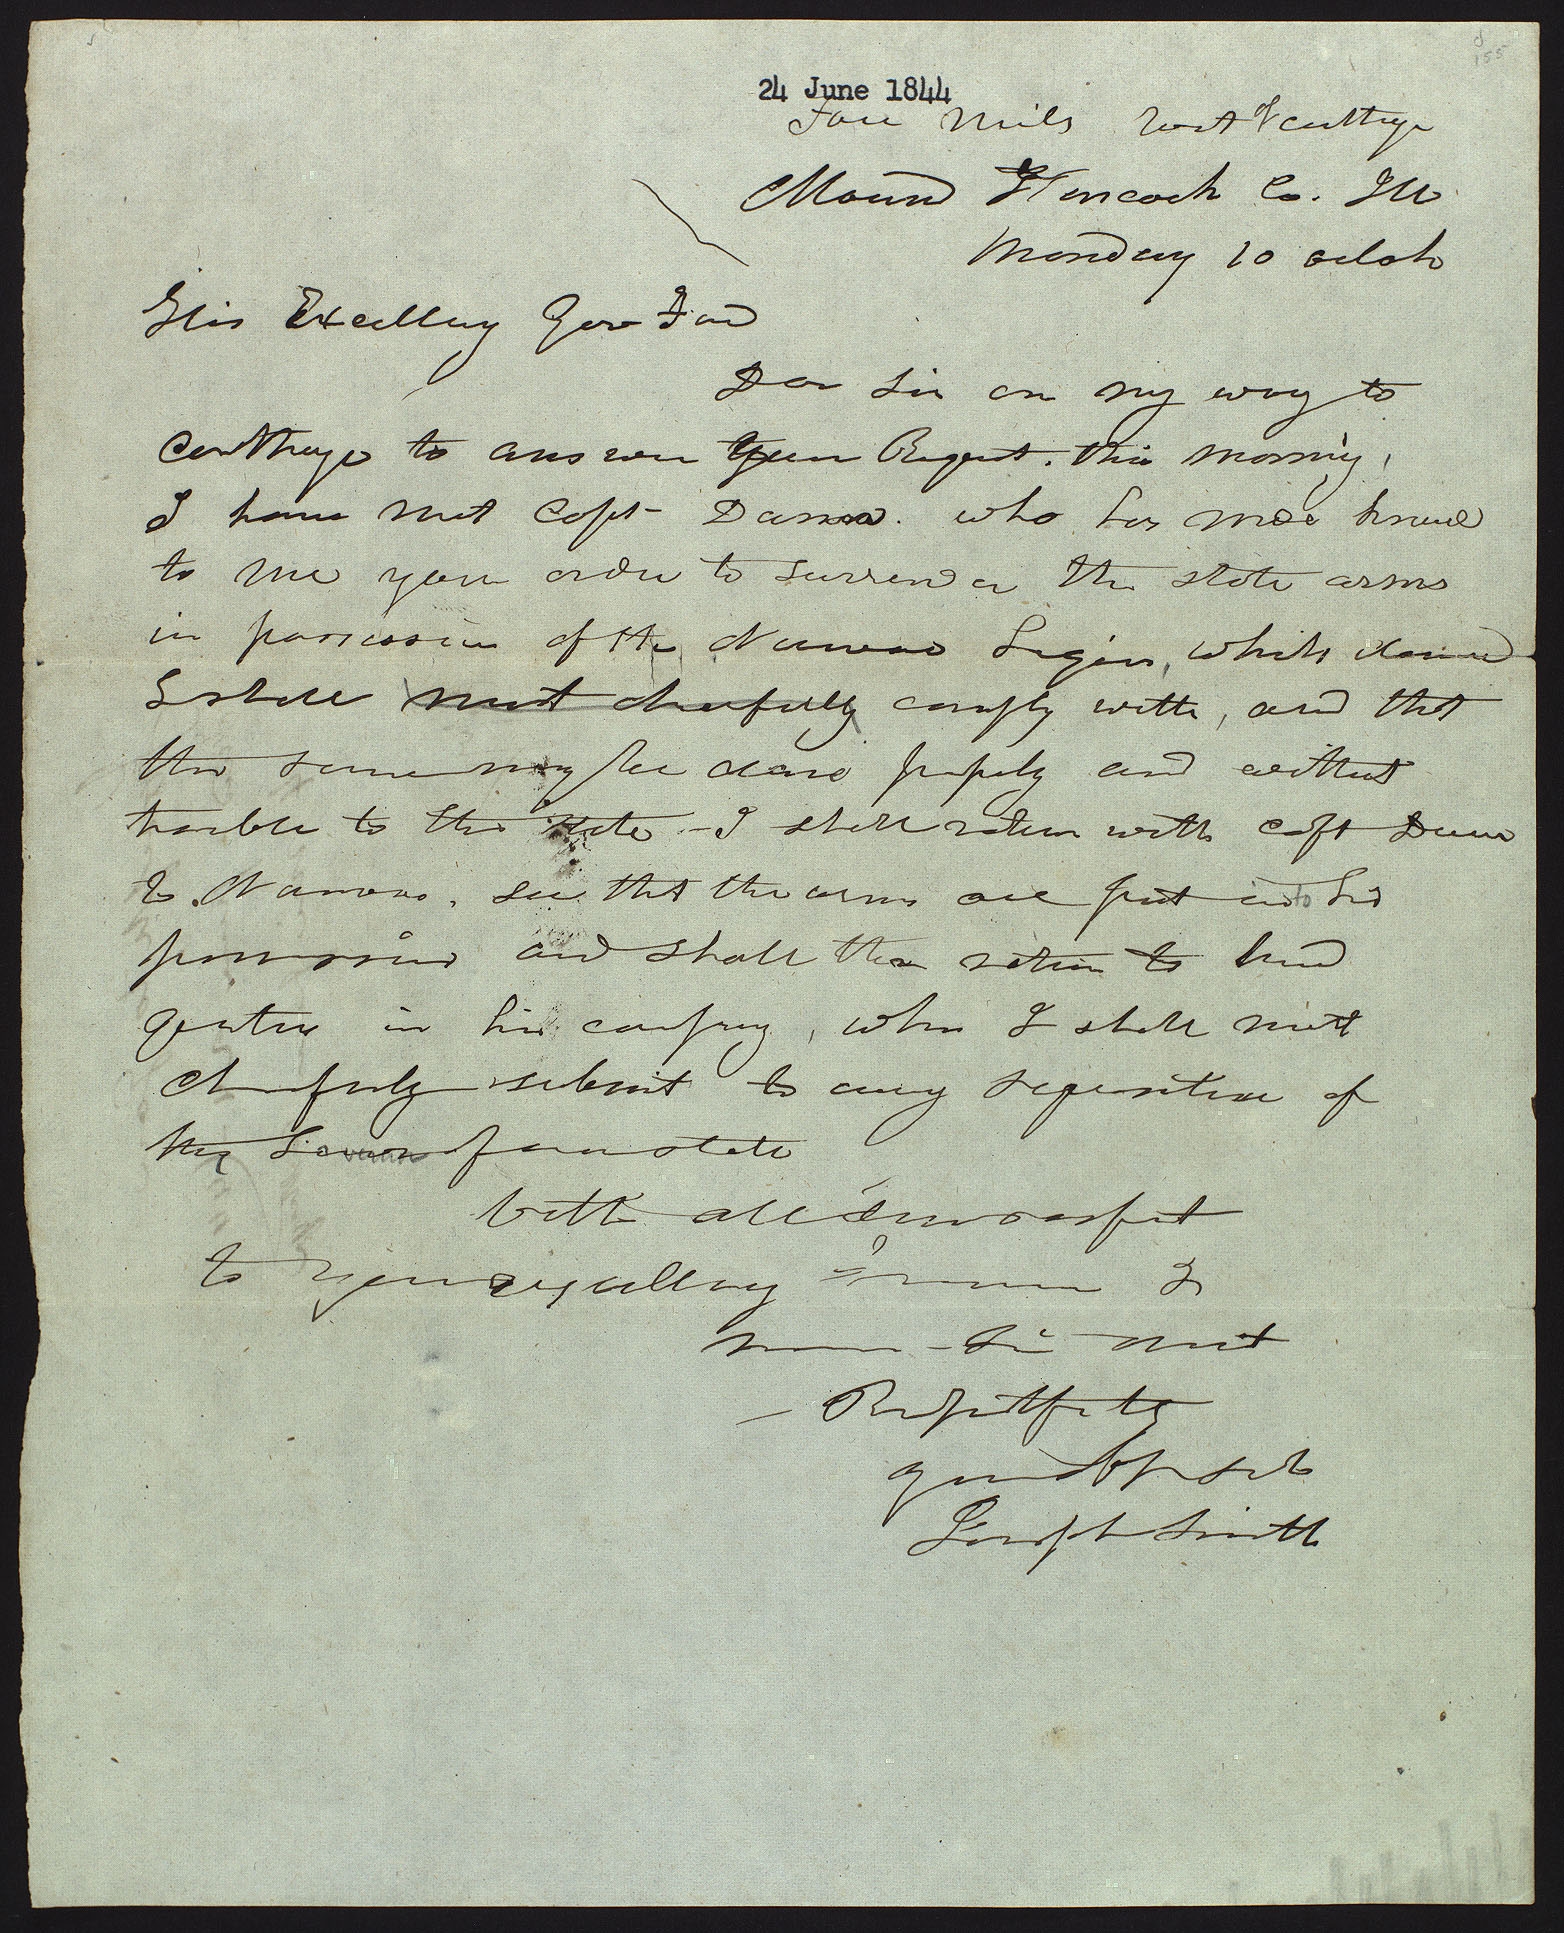 24 June 1844
Four Miles west of Carthage
Mound Hancock Co. Ill
Monday 10 oclok
His Excellency Gov Ford
Dear Sir on my way to
Carthage to answer your Request this morning,
I have met Capt Dunn. who has made known
to me your order to surrender the state arms
in possession of the Nauvoo Legion, which
I shall most cheerfully comply with, and that
the same may be done properly and without
trouble to the State - I shall return with Capt Dunn
to Nauvoo, see that the arms are put into his
possession and shall then return to head
quarters in his company, when I shall most
cheerfuly submit to any requisition of
the Governor of our state
With all due respect
to your excellency I
remain Sir most
Respectfully
your obt servt
Joseph Smith